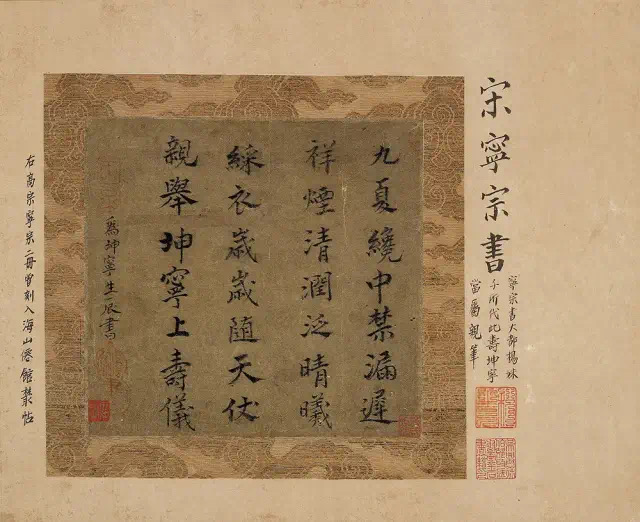 宋寧宗書
寧宗書大都楊妹
子所代此壽坤寧
當屬親筆
九夏繞中禁漏遲
祥煙清潤泛晴曦
綵衣歲歲隨天仗
親舉坤寧上壽儀
爲坤寧生辰書
右高宗寧宗二冊曾刻入海山僊館叢帖